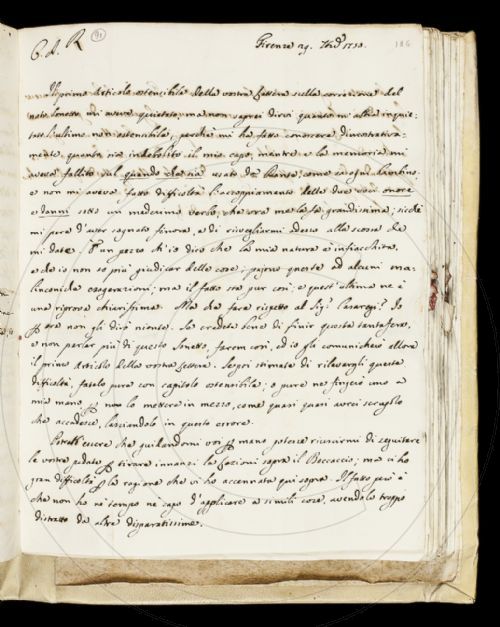 C. A. R. 91
Firenze 29. 7bre 1753. 186
Il primo Articolo ostensibile della vostra Lettera sulla correzione del
noto Sonetto mi aveva quietato; ma non saprei dirvi quanto m'abbia inquie-
tato l'ultimo non ostensibile, perchè mi ha fatto conoscere dimostrativa-
mente quanto sia indebolito il mio capo, mentre e la memoria mi
aveva fallito sul quando che sia usato da come
e non mi aveva fatto difficoltà l'accoppiamento delle due voci onore
e danni sotto un medesimo verbo, che ora me la fa grandissima; sicchè
mi pare d'aver sognato finora, e di risvegliarmi adesso alla scossa che
mi date. È un pezzo ch'io dico che la mia natura è infiacchita,
e che io non so più giudicar delle cose; pajono queste ad alcuni ma-
linconiche esagerazioni; ma il fatto sta pur così, e quest'ultima ne è
una riprova chiarissima. Ma che fare rispetto al Sigr. Casaregi? Io
per ora non gli dirò niente. Se credete bene di finir questa
e non parlar più di questo Sonetto, farem così, ed io gli comunicherò allora
il primo Articolo della vostra Lettera. Se poi stimate di rilevargli questa
difficoltà, fatelo pure con capitolo ostensibile; o pure ne fingerò uno a
mia mano, per non lo mettere in mezzo, come quasi quasi avrei scrupolo
che accadesse, lasciandolo in questo errore.
Potrebb'essere che guidandomi voi per mano potesse riuscirmi di seguitare
le vostre pedate per tirare innanzi la sopra il Boccaccio; ma ci ho
gran difficoltà per la ragione che vi ho accennata qui sopra. Il fatto però è
che non ho nè tempo nè capo d'applicare a simili cose, avendolo troppo
distratto da altre disparatissime.